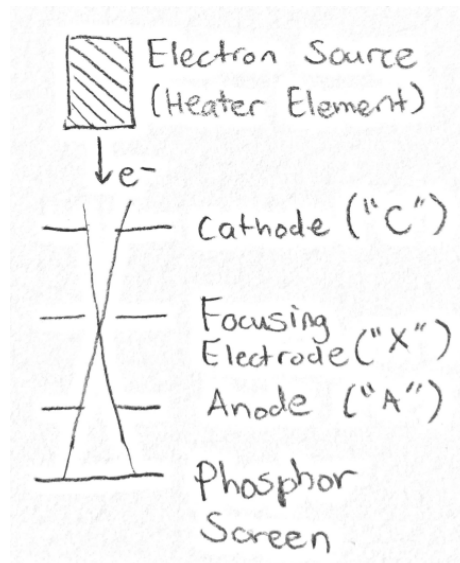 Electron Source
(Heater Element)
e-
Cathode ("C")
Focusing
Electrode ("X")
Anode ("A")
Phosphor
Screen